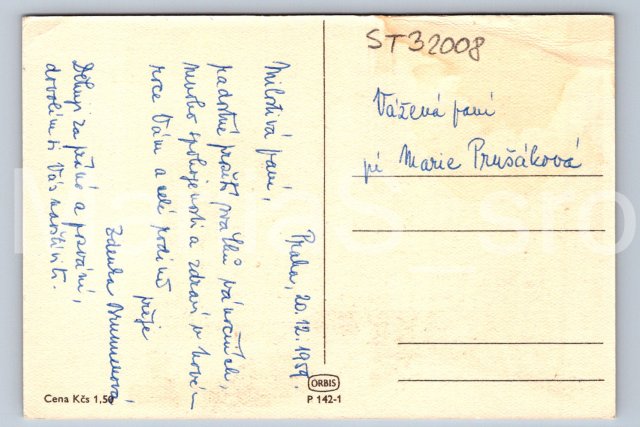 ST32008
Praha, 20.12.1959.
Milostivá paní,
radostné prožití svátků vánočních,
mnoho spokojenosti a zdraví v novém
roce Vám a celé rodině přeje
Zdenka
Děkuji za přání a pozvání,
dovolím si Vás navštíviti.
Vážená paní
pí Marie Prušáková
Cena Kčs 1,50
ORBIS
P 142-1